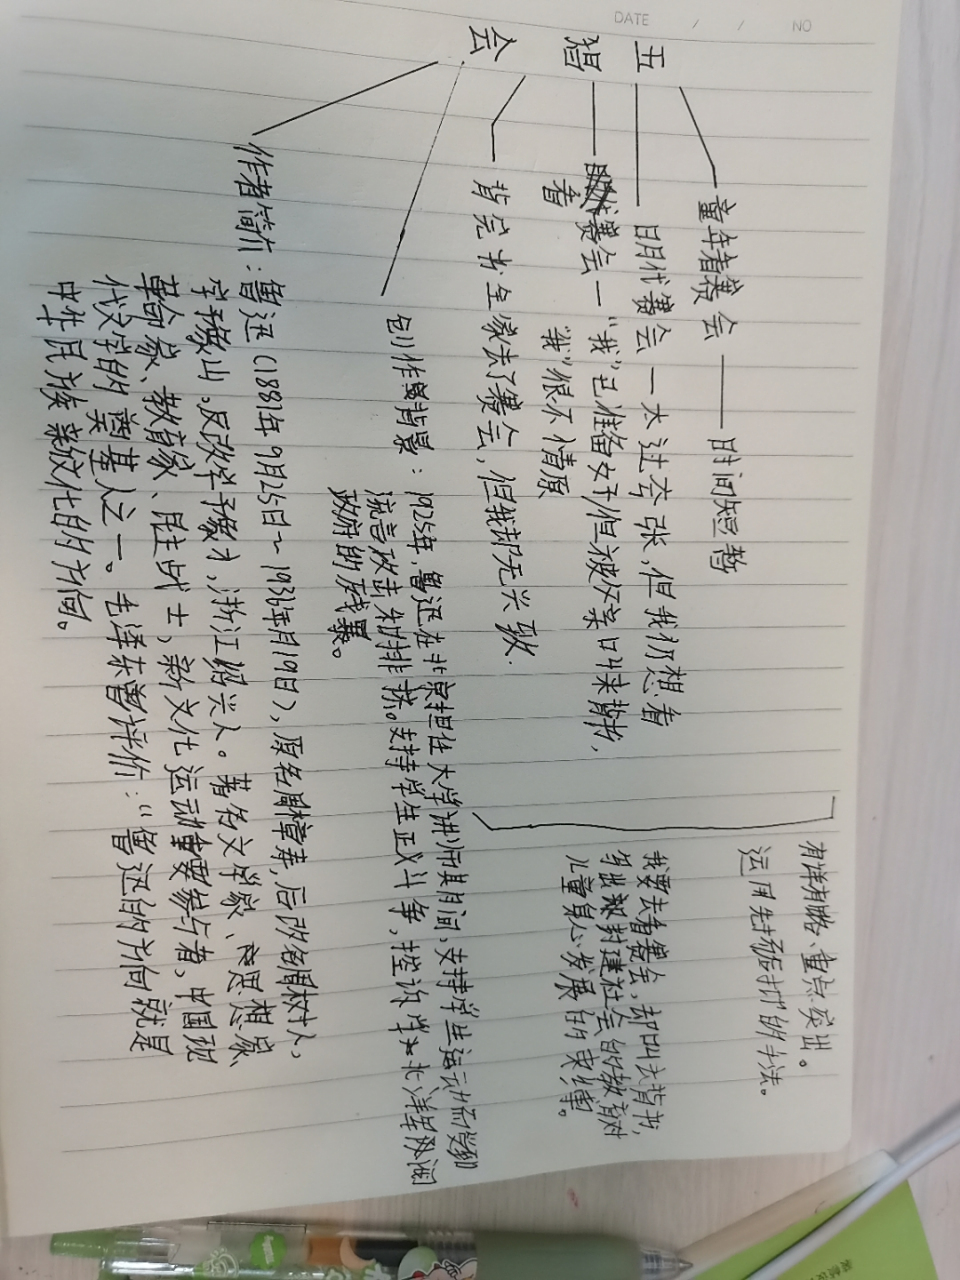 DATE / / NO
五猖会
童年看赛会 —— 时间短暂
明代赛会 — 大过夸张,但我仍想看
看赛会 — “我”已准备好但被父亲叫来背书,
“我”很不情愿
背完书全家去了赛会,但我却无兴致.
有详有略、重点突出。
运用先扬后抑的手法。
我要去看赛会,却叫去背书,
写出了封建社会的教育对
儿童身心发展的束缚。
创作背景:1925年,鲁迅在北京担任大学讲师期间,支持学生运动而受到
流言攻击和排挤。支持学生正义斗争,控诉北洋军阀
政府的残暴。
作者简介:鲁迅(1881年9月25日~1936年月19日),原名周樟寿,后改名周树人,
字豫山,反改字豫才,浙江绍兴人。著名文学家、思想家
革命家、教育家、民主战士,新文化运动重要参与者,中国现
代文学的奠基人之一。毛泽东曾评价:“鲁迅的方向就是
中华民族新文化的方向。